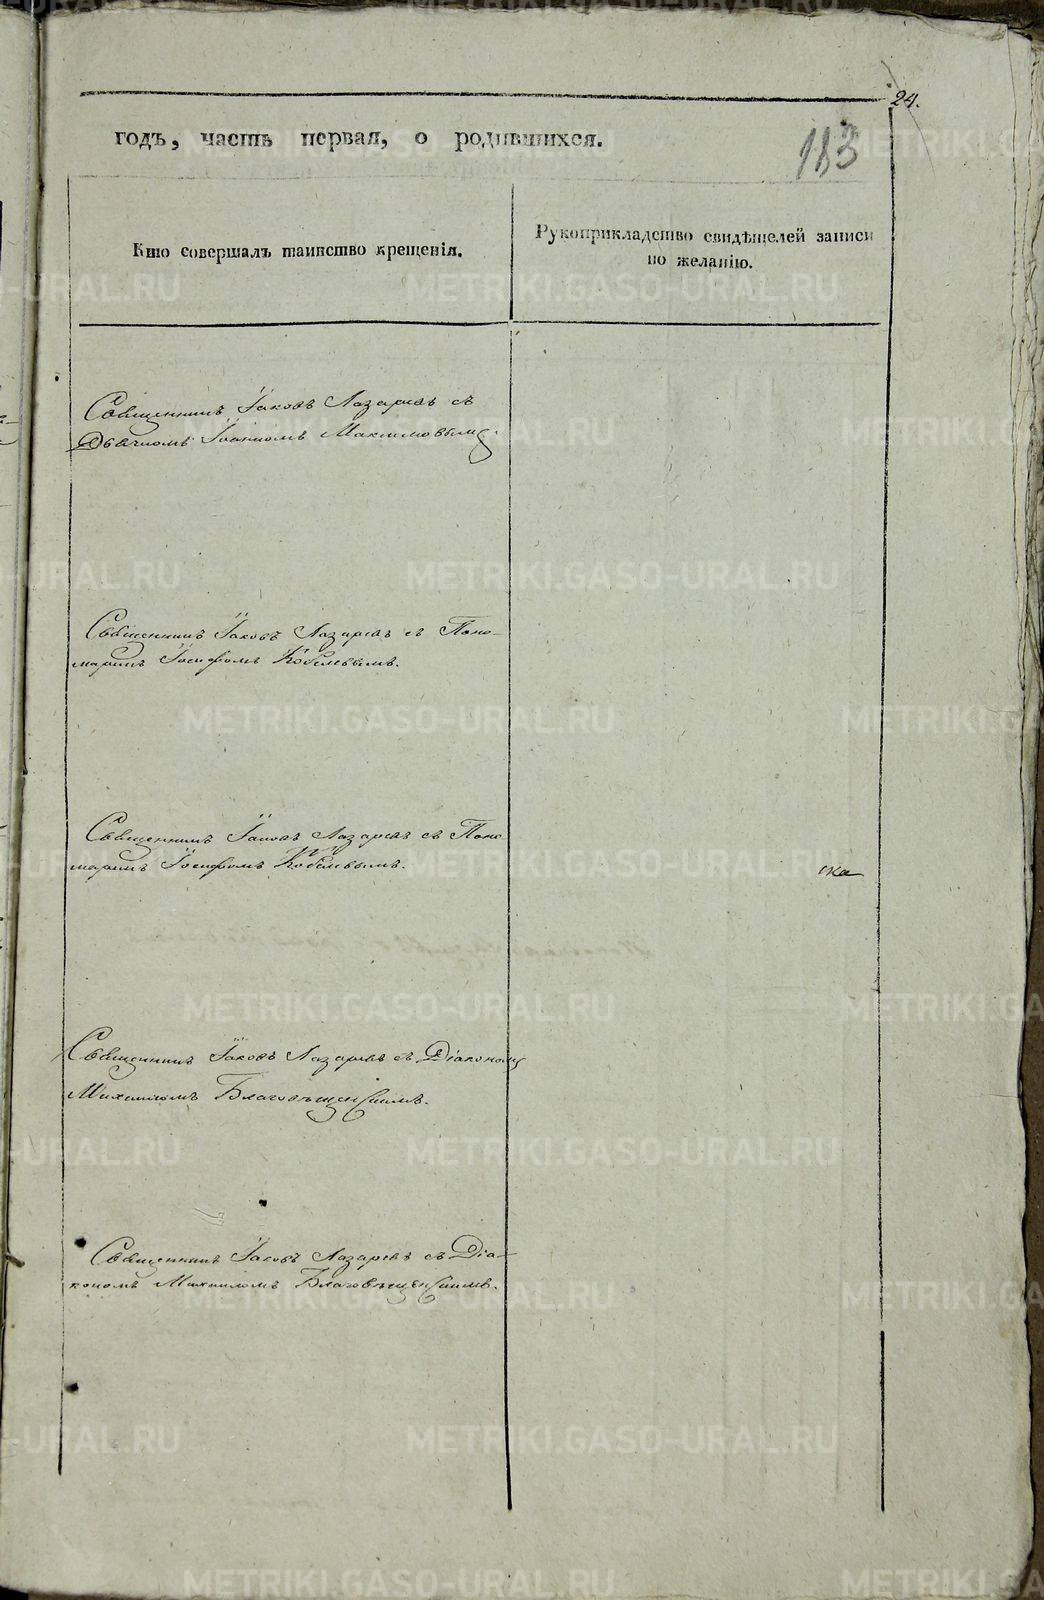 24.
годъ, часть первая, о родившихся.
183
Кто совершалъ таинство крещенія.
Рукоприкладство свидѣтелей записи
по желанію.
Священникъ Іаковъ Лазаревъ съ
Дьячкомъ Іоанномъ Максимовымъ.
Священникъ Іаковъ Лазаревъ съ Поно-
маремъ Іосифомъ Кобелевымъ.
Священникъ Іаковъ Лазаревъ съ Поно
маремъ Іосифомъ Кобелевымъ.
ска
Священникъ Іаковъ Лазаревъ съ Діакономъ
Михаиломъ Благовѣщенскимъ.
Священникъ Іаковъ Лазаревъ съ Діа-
кономъ Михаиломъ Благовѣщенскимъ.
METRIKI.GASO-URAL.RU